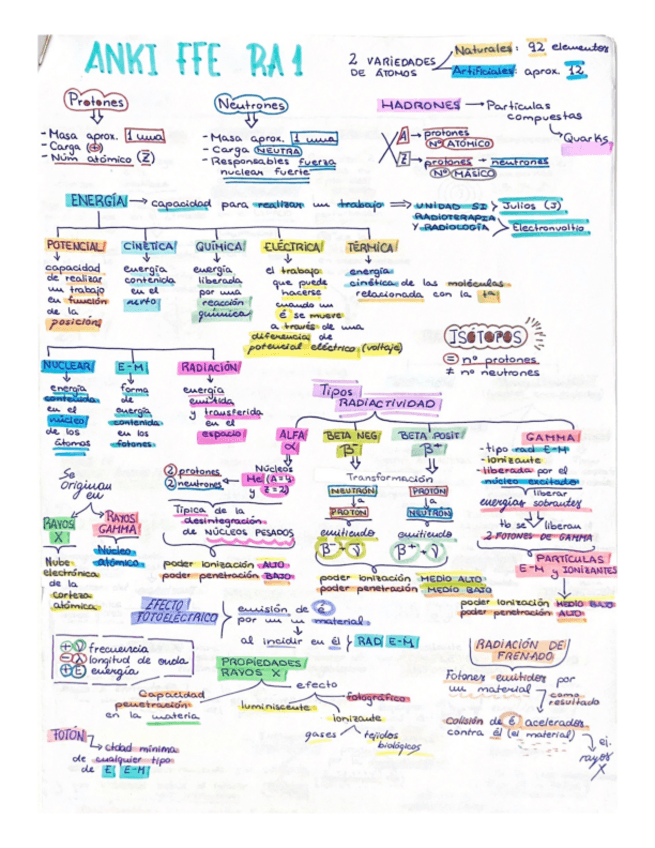 ANKI FFE RA1
2 VARIEDADES DE ÁTOMOS
Naturales: 92 elementos
Artificiales: aprox. 12
Protones
- Masa aprox. 1 uma
- Carga +
- Núm atómico (Z)
Neutrones
- Masa aprox. 1 uma
- Carga NEUTRA
- Responsables fuerza
nuclear fuerte
HADRONES → Partículas
compuestas
Quarks
X
A → protones
Nº ATÓMICO
Z → protones - neutrones
Nº MÁSICO
ENERGÍA → capacidad para realizar un trabajo ⇒ UNIDAD SI > Julios (J)
RADIOTERAPIA
Y RADIOLOGÍA > Electronvoltio
POTENCIAL
capacidad
de realizar
un trabajo
en función
de la
posición
CINÉTICA
energía
contenida
en el
QUÍMICA
energía
liberada
por una
reacción
química
ELÉCTRICA
el trabajo
que puede
hacerse
cuando un
é se mueve
a través de una
diferencia de
potencial eléctrico (voltaje)
TÉRMICA
energía
cinética de las moléculas
relacionada con la tª
ISÓTOPOS
= nº protones
≠ nº neutrones
NUCLEAR
energía
contenida
en el
núcleo
de los
átomos
E-M
forma
de
energía
contenida
en los
fotones
RADIACIÓN
energía
emitida
y transferida
en el
espacio
Tipos
RADIACTIVIDAD
ALFA
α
Núcleos
He (A=4
y Z=2)
2 protones
2 neutrones
Típica de la
desintegración
de NÚCLEOS PESADOS
poder ionización ALTO
poder penetración BAJO
BETA NEG
β-
BETA POSIT
β+
Transformación
NEUTRÓN
a
PROTÓN
emitiendo
β- + ν
PROTÓN
a
NEUTRÓN
emitiendo
β+ + ν
poder ionización MEDIO ALTO
poder penetración MEDIO BAJO
GAMMA
- tipo rad E-M
- ionizante
- liberada por el
núcleo excitado
liberar
energías sobrantes
tb se liberan
2 FOTONES DE GAMMA
PARTÍCULAS
E-M y IONIZANTES
poder ionización MEDIO BAJO
poder penetración ALTO
Se
originan
en
RAYOS
X
Nube
electrónica
de la
corteza
atómica
RAYOS
GAMMA
Núcleo
atómico
EFECTO
FOTOELÉCTRICO
emisión de é
por un material
al incidir en él } RAD E-M
+ ν frecuencia
- λ longitud de onda
+ E energía
PROPIEDADES
RAYOS X
Capacidad
penetración
en la materia
efecto
luminiscente
ionizante
gases
tejidos
biológicos
fotográfico
RADIACIÓN DE
FRENADO
Fotones emitidos por
un material
como
resultado
colisión de é acelerados
contra él (el material)
ej.
rayos
X
FOTÓN
ctdad mínima
de cualquier tipo
de E E-M